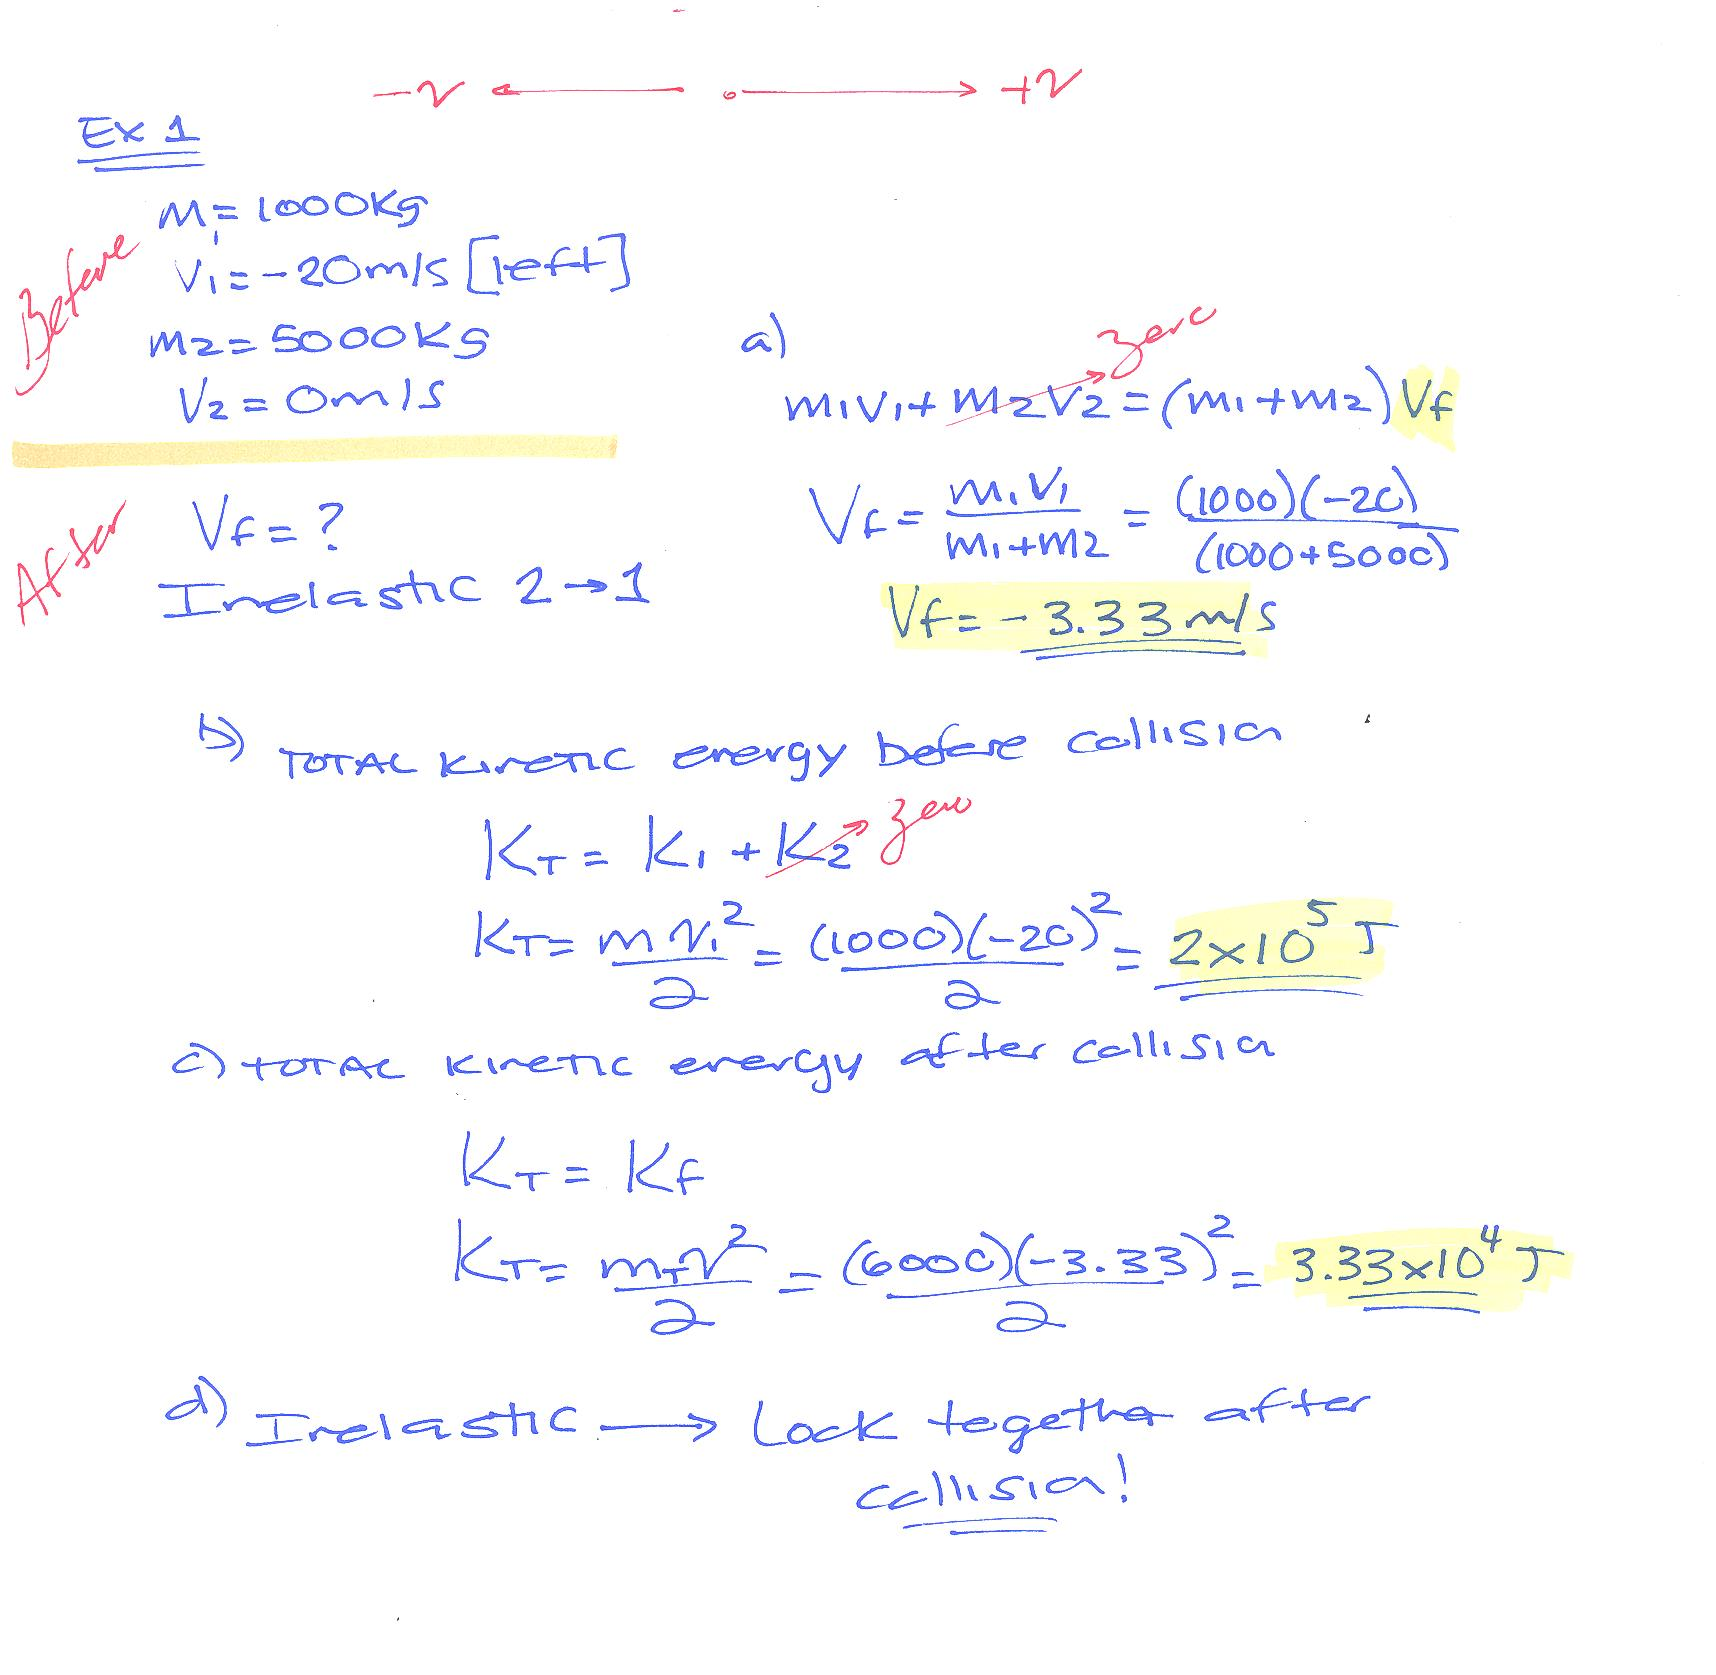 -v +v
Ex 1
Before
m₁ = 1000Kg
V₁ = -20m/s [left]
m2 = 5000Kg
V2 = 0m/s
After
Vf = ?
Inelastic 2→1
a)
zero
m₁v₁ + m2v2 = (m₁+m2) Vf
Vf = m₁v₁/m₁+m2 = (1000)(-20)/(1000+5000)
Vf = -3.33 m/s
b) TOTAL Kinetic energy before collision
KT = K₁ + K2 zero
KT = mv₁²/2 = (1000)(-20)²/2 = 2x10⁵ J
c) TOTAL Kinetic energy after collision
KT = Kf
KT = mTv²/2 = (6000)(-3.33)²/2 = 3.33x10⁴ J
d) Inelastic → Lock together after
collision!